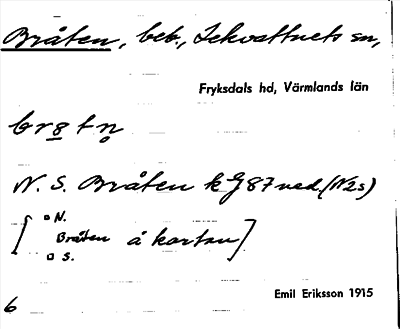 Bråten, beb., Lekvattnets sn,
Fryksdals hd, Värmlands län
br8tn̥
N. S. Bråten k Gg 87 ned. (N2s)
[ ▫ N.
Bråten å kartan ]
▫ S.
Emil Eriksson 1915
6